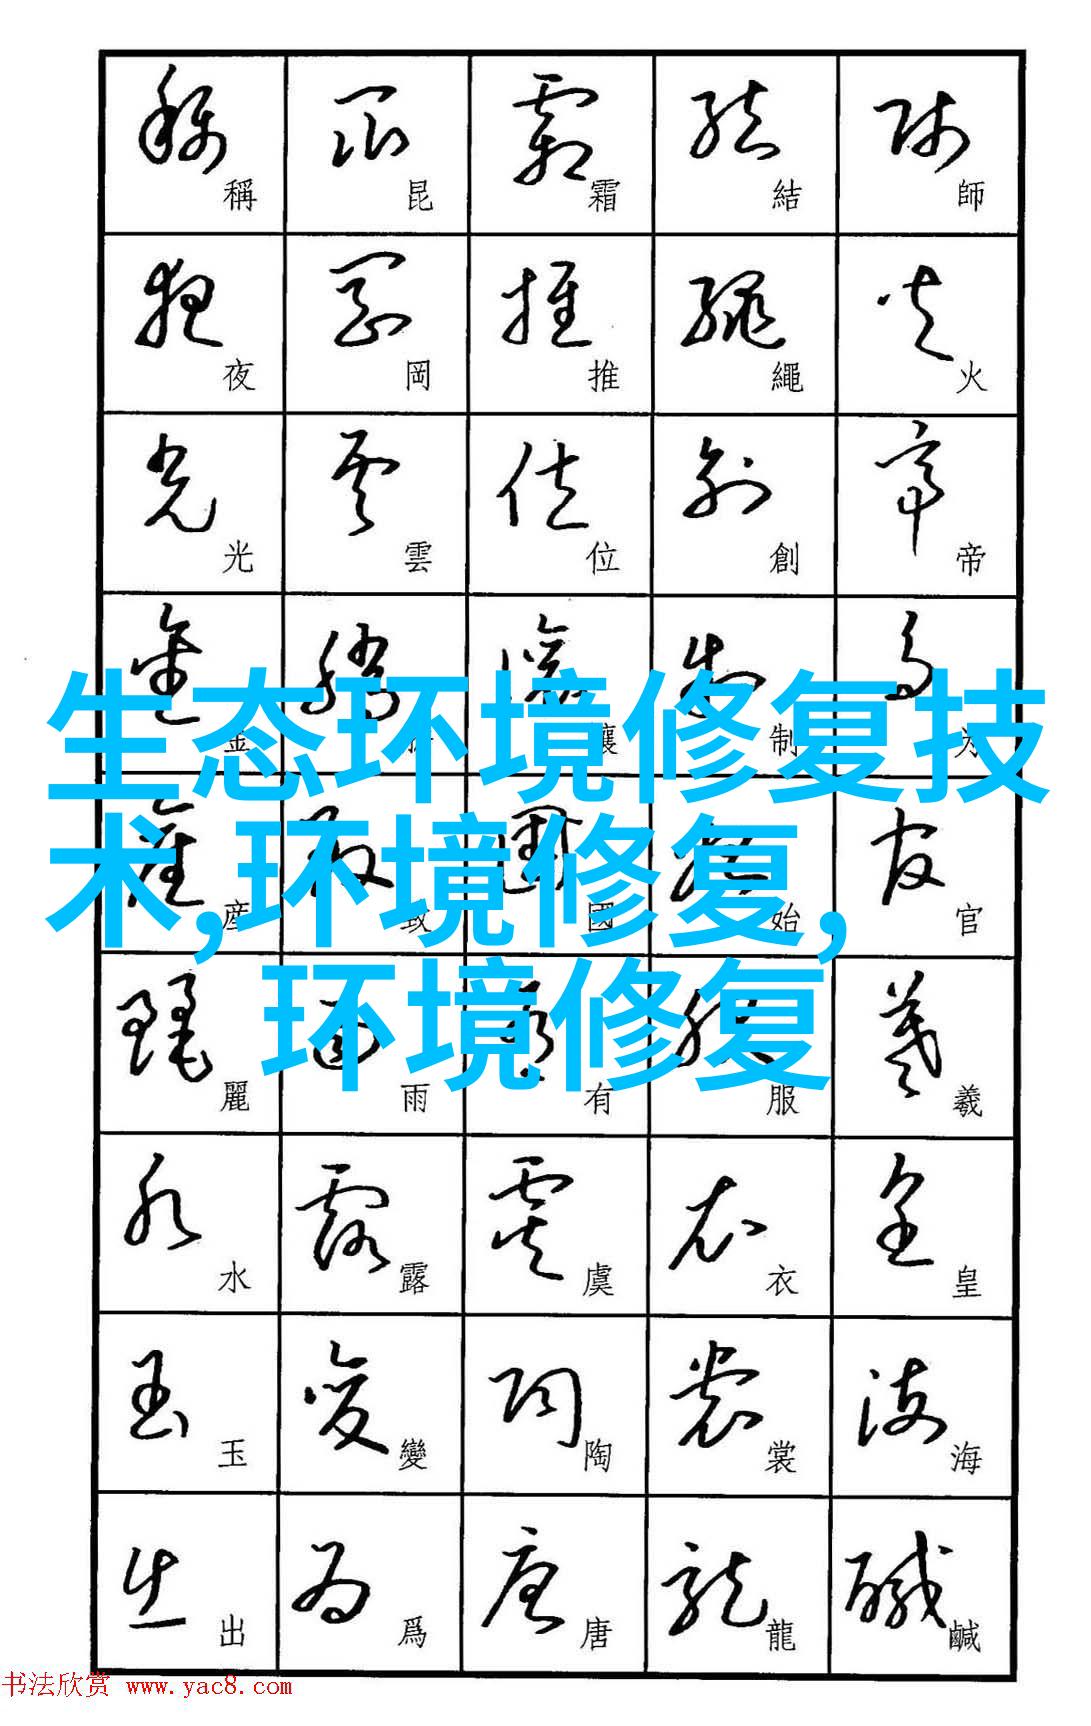 稱 昆 霜 結 師
夜 岡 推 繩 火
光 雲 位 創 帝
金 讓 制
生态环境修复技
術产 
术,环境修复,
産 致 國 始 官
环境修复
麗 雨 有 服 羲
水 露 虞 衣 皇
玉 變 陶 裳 海
出 爲 唐 龍 鹹
书法欣赏 www.yac8.com